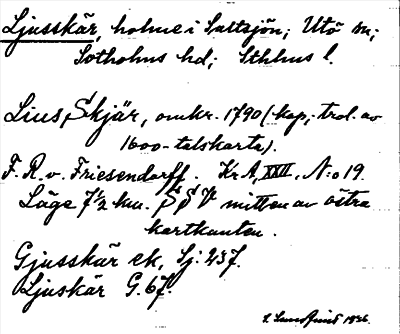 Ljusskär, holme i Saltsjön; Utö sn;
Sotholms hd; Sthlms l.
Lius Skjär, omkr. 1790 (kop; trol. av
1600-talskarta).
F. R. v. Friesendorff. KrA, XXII, N:o 19.
Läge 7½ km. SSV mitten av östra
kartkanten.
Gjusskär ek, Sj: 237.
Ljuskär G. 67.
1926.